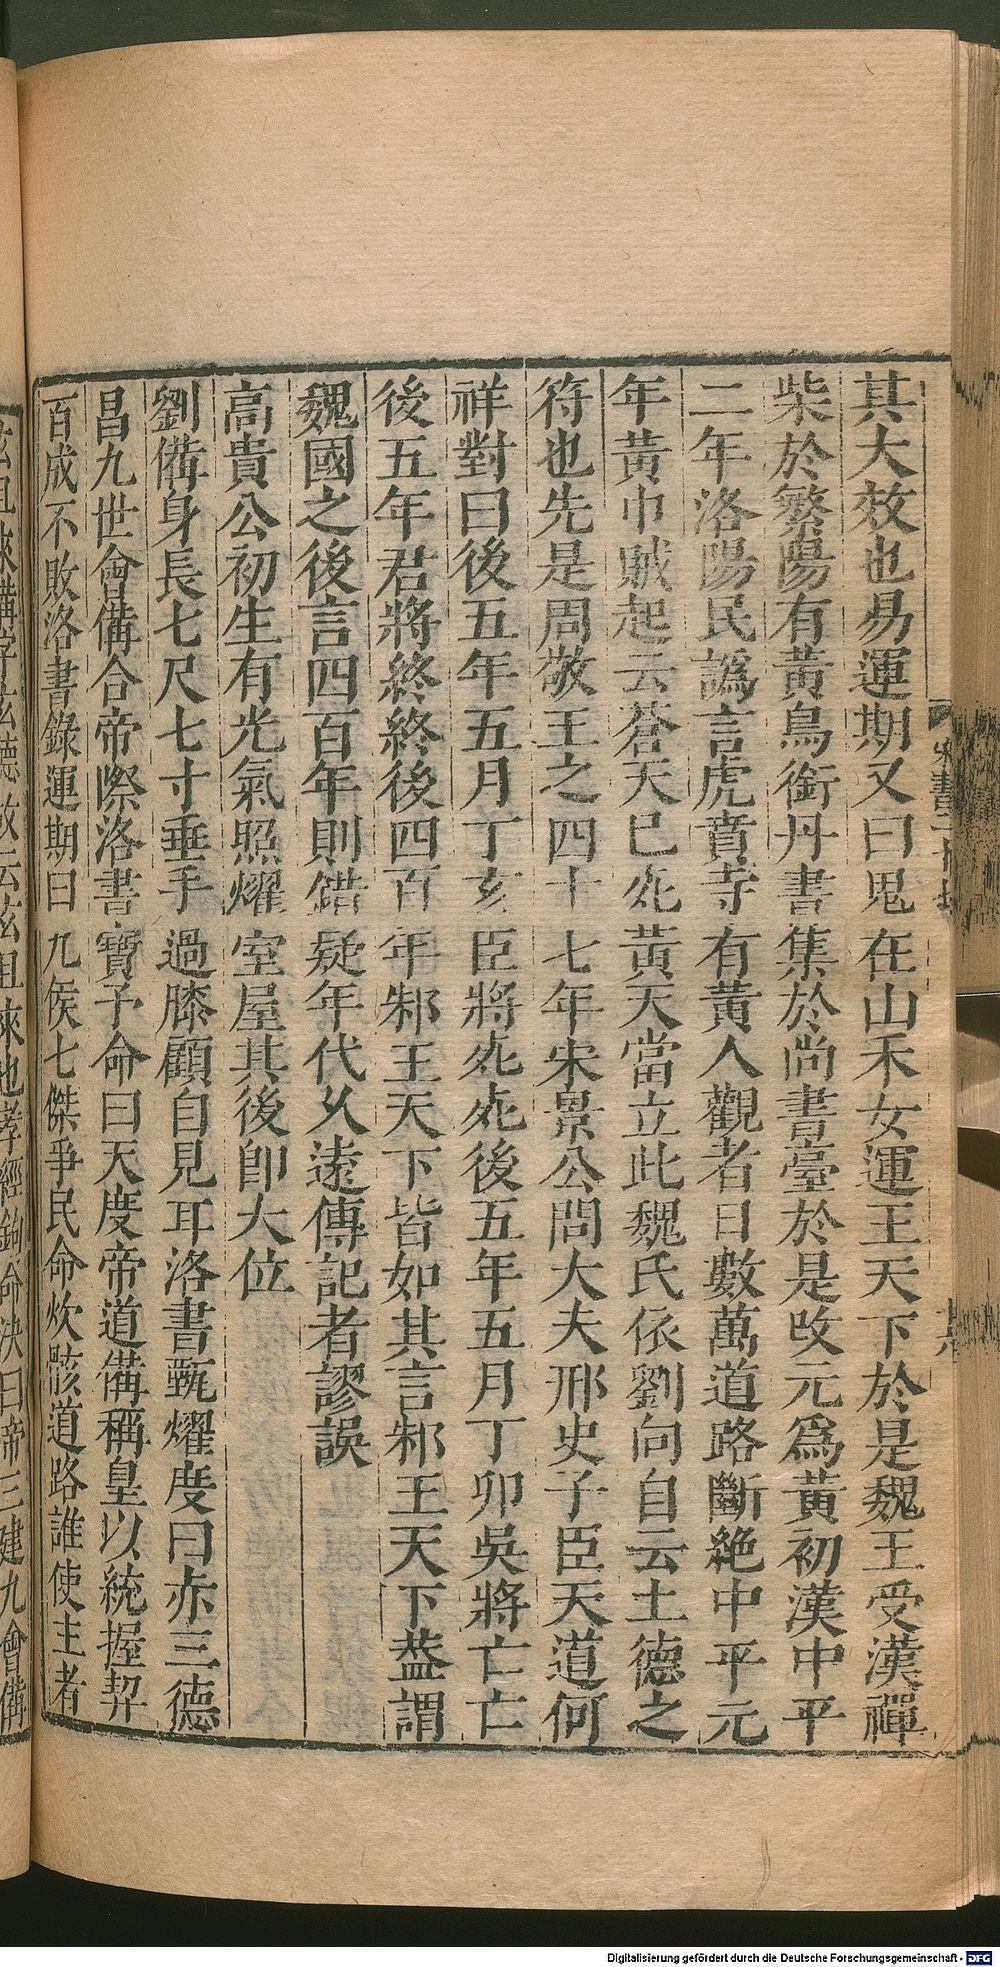 其大效也易運期又曰鬼在山禾女運王天下於是魏王受漢禪
柴於繁陽有黃鳥銜丹書集於尚書臺於是改元爲黃初漢中平
二年洛陽民譌言虎賁寺有黃人觀者日數萬道路斷絶中平元
年黃巾賊起云蒼天已死黃天當立此魏氏依劉向自云土德之
符也先是周敬王之四十七年宋景公問大夫邢史子臣天道何
祥對曰後五年五月丁亥臣將死死後五年五月丁卯吳將亡亡
後五年君將終終後四百年邾王天下皆如其言邾王天下葢謂
魏國之後言四百年則錯疑年代久遠傳記者謬誤
高貴公初生有光氣照燿室屋其後卽大位
劉備身長七尺七寸垂手過膝顧自見耳洛書甄燿度曰赤三德
昌九世會備合帝際洛書寶予命曰天度帝道備稱皇以統握契
百成不敗洛書錄運期曰九侯七傑爭民命炊骸道路誰使主者
玄且來備字玄德故云玄且來也孝經鉤命決曰帝三建九會備
Digitalisierung gefördert durch die Deutsche Forschungsgemeinschaft - DFG